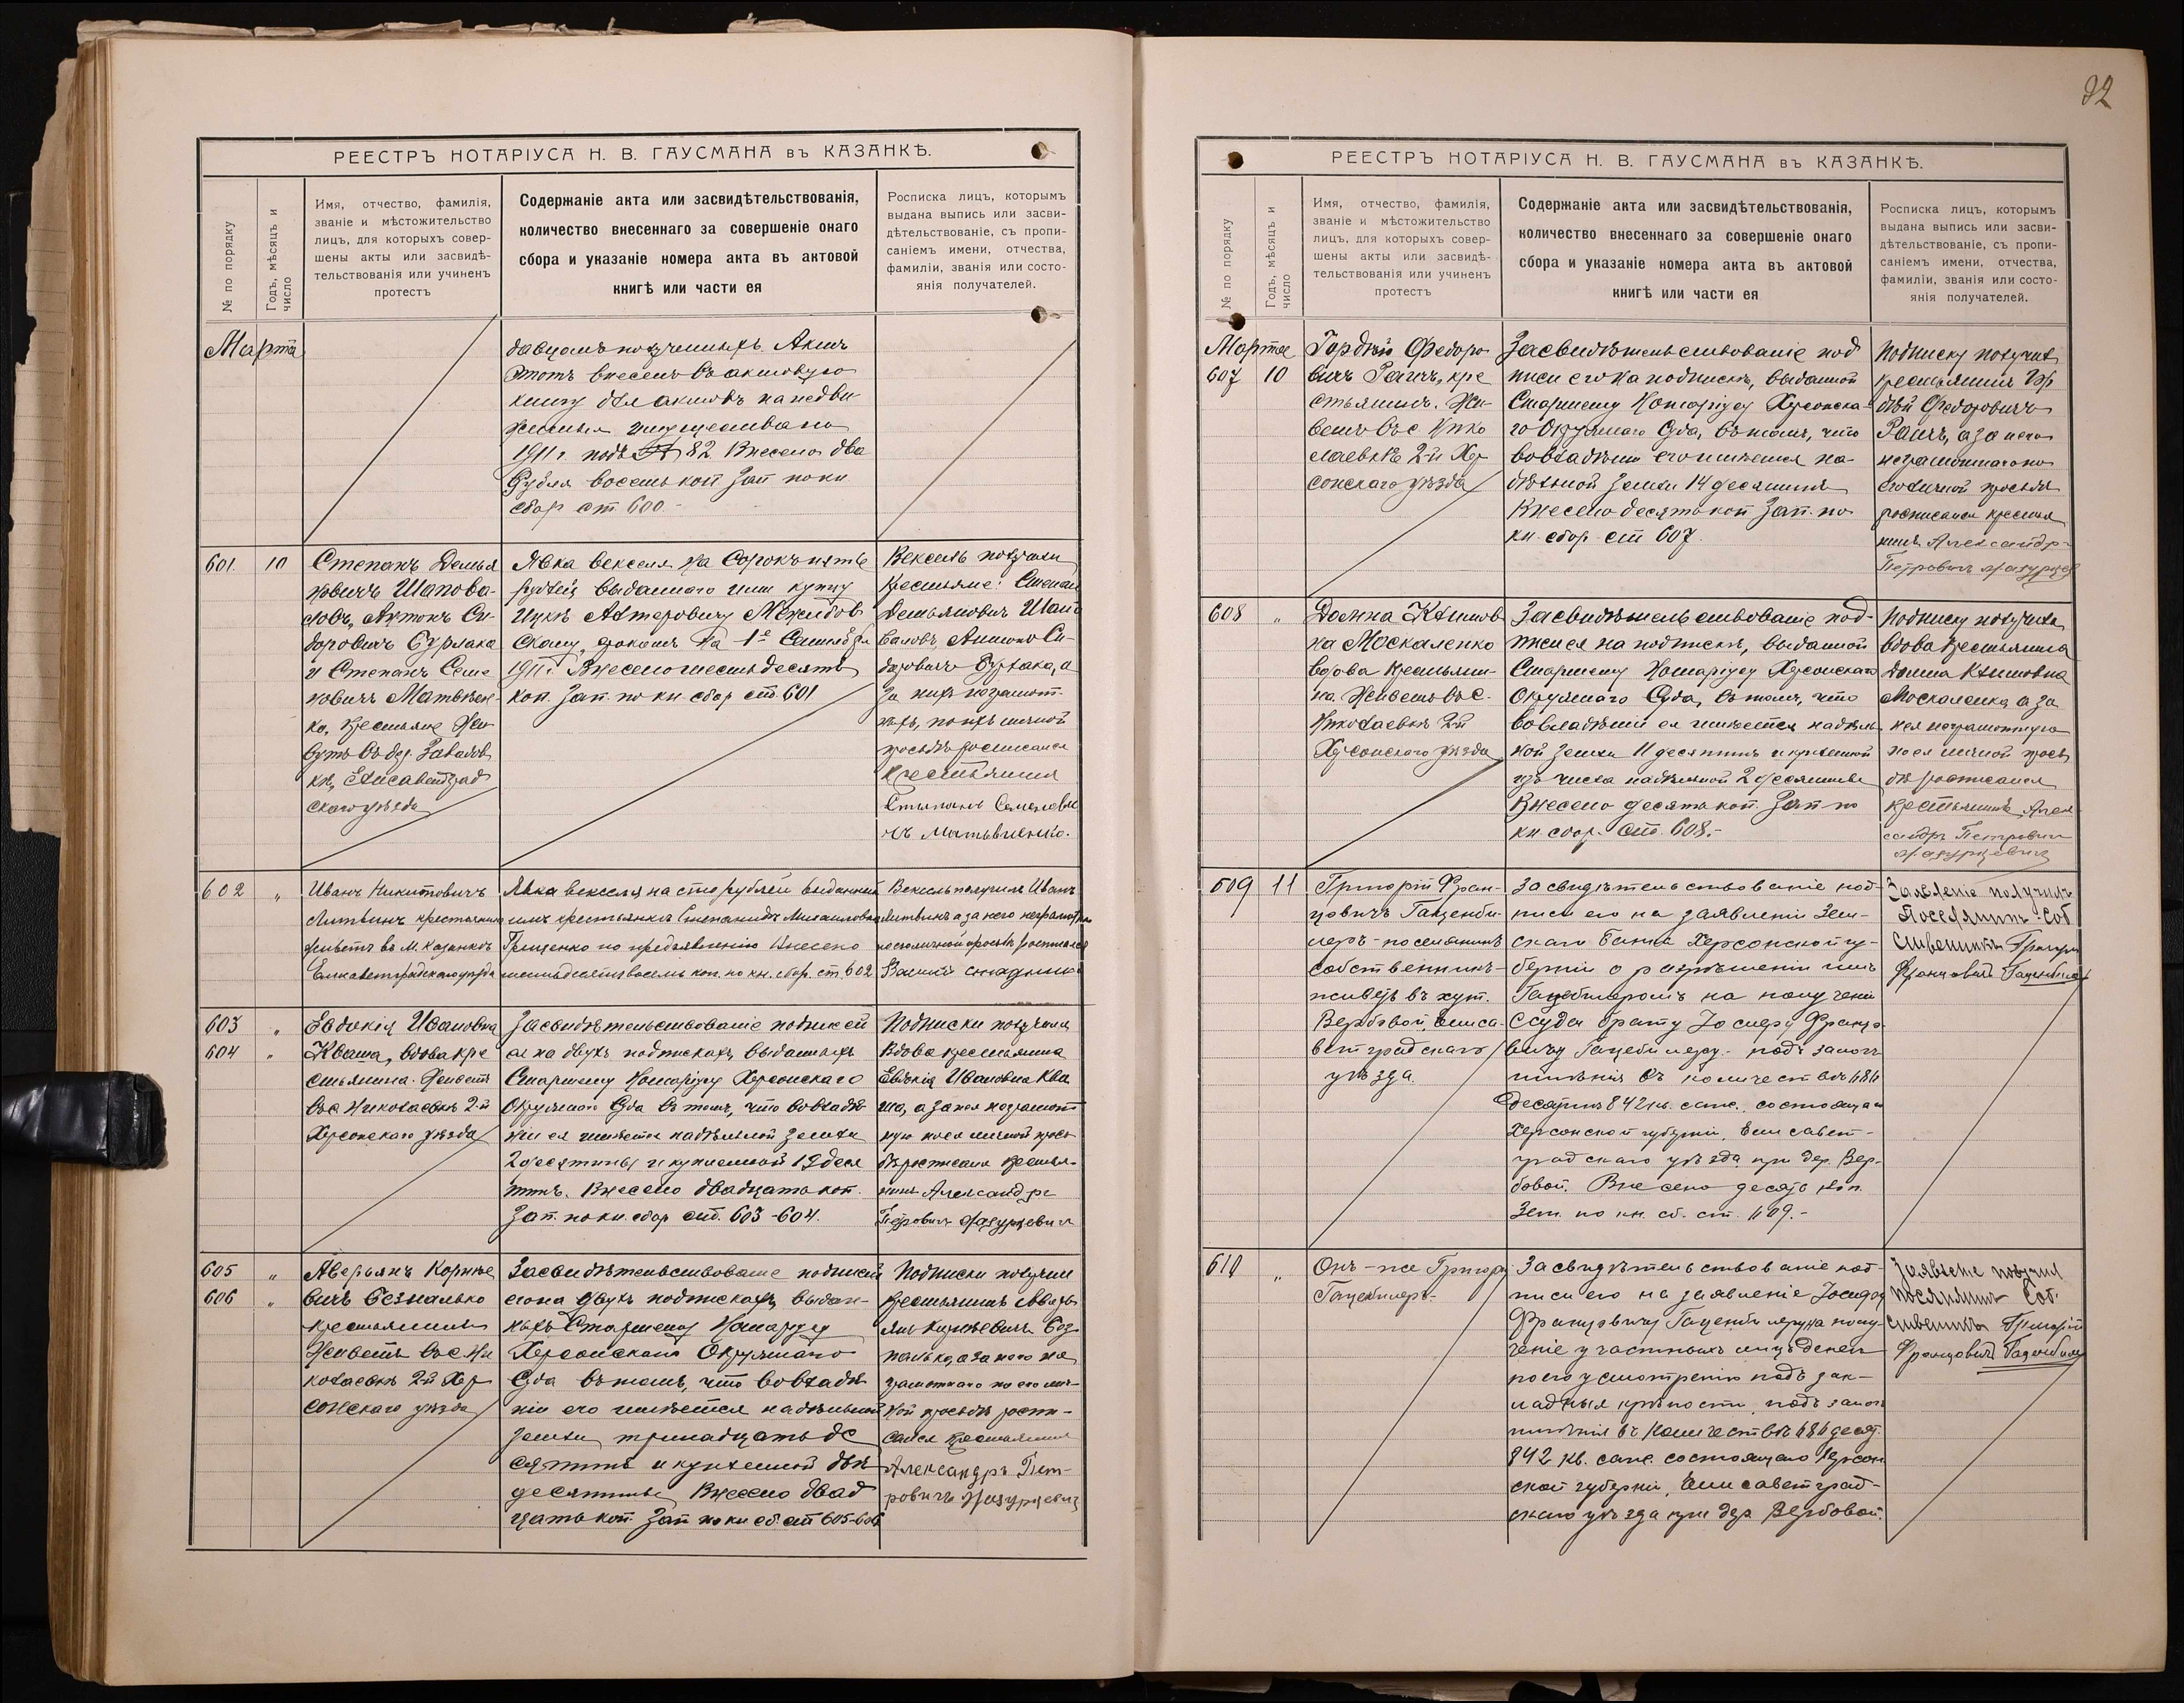 92
РЕЕСТРЪ НОТАРІУСА Н. В. ГАУСМАНА въ КАЗАНКѢ.
№ по порядку
Годъ, мѣсяцъ и число
Имя, отчество, фамилія,
званіе и мѣстожительство
лицъ, для которыхъ совер-
шены акты или засвидѣ-
тельствованія или учиненъ
протестъ
Содержаніе акта или засвидѣтельствованія,
количество внесеннаго за совершеніе онаго
сбора и указаніе номера акта въ актовой
книгѣ или части ея
Росписка лицъ, которымъ
выдана выпись или засви-
дѣтельствованіе, съ пропи-
саніемъ имени, отчества,
фамиліи, званія или состо-
янія получателей.
Марта
давцомъ полученныхъ. Актъ
этотъ внесенъ въ актовую
книгу для актовъ на недви
жимыя имущества на
1911 г. подъ № 82 Внесено два
Рубля восемь коп Зап по кн
сбор ст 600 -
601. 10
Степанъ Демья
новичъ Шапова-
ловъ, Антонъ Си-
доровичъ Бурлака
и Степанъ Семе
новичъ Матвѣен-
ко, крестьяне Жи-
вутъ въ дер. Завалов
кѣ, Елисаветград
скаго уѣзда
Явка векселя на Сорокъ пять
рублей выданного ими купцу
Ицкѣ Ахтеровичу Межибов
скому, срокомъ на 1е Сентября
1911 г. Внесено шестьдесятъ
коп. Зап. по кн сбор ст. 601
Вексель получили
Крестьяне: Степан
Демьяновичъ Шапо
валовъ, Антонъ Си-
доровичъ Бурлака, а
за нихъ неграмот-
ныхъ, по ихъ личной
просьбѣ росписался
Крестьянинъ
Степанъ Семенови
чъ Матьвиенко.
602 "
Иванъ Никитовичъ
Литвинъ крестьянинъ
живетъ въ М. Казанкѣ
Елисаветградскаго уѣзда
Явка векселя на сто рублей выданный
имъ крестьянкѣ Степанидѣ Михаиловнѣ
Гриценко по предъявленію Внесено
семьдесятъ восемь коп. по кн. сбор. ст. 602
Вексель получилъ Иванъ
Литвинъ а за него неграмотнаго
по его личной просьбѣ росписался
603 "
604 "
Евдокія Ивановна
Кваша, вдова кре
стьянина. Живетъ
въ с Николаевкѣ 2-й
Херсонскаго уѣзда
Засвидѣтельствованіе подписей
ея на двухъ подпискахъ, выданныхъ
Старшему Нотаріусу Херсонскаго
Окружнаго Суда въ томъ, что во владѣ
ніи ея имѣется надѣльной земли
2 десятины и купленной 19 деся
тинъ. Внесено двадцать коп.
Зап. по кн. сбор ст. 603 - 604.
Подписки получила
Вдова крестьянина
Евдокія Ивановна Ква
ша, а за нея неграмот
ную по ея личной прось
бѣ росписался крестья-
нинъ Александръ
Петровичъ Мазуркевич
605 "
606 "
Аверьянъ Корнѣе
вичъ Безпалько
крестьянинъ
Живетъ въ с Ни
колаевкѣ 2-й Хер
сонскаго уѣзда
Засвидѣтельствованіе подписей
его на двухъ подпискахъ, выдан-
ныхъ Старшему Нотаріусу
Херсонскаго Окружнаго
Суда въ томъ, что во владѣ
ніи его имѣется надѣльной
земли тринадцать де
сятинъ и купленной двѣ
десятины Внесено двад
цать коп Зап по кн сб. ст 605-606
Подписки получилъ
крестьянинъ Аверь
янъ Корнѣевичъ Без
палько, а за него не
грамотнаго по его лич-
ной просьбѣ роспи-
сался крестьянинъ
Александръ Пет-
ровичъ Мазуркевич
РЕЕСТРЪ НОТАРІУСА Н. В. ГАУСМАНА въ КАЗАНКѢ.
№ по порядку
Годъ, мѣсяцъ и число
Имя, отчество, фамилія,
званіе и мѣстожительство
лицъ, для которыхъ совер-
шены акты или засвидѣ-
тельствованія или учиненъ
протестъ
Содержаніе акта или засвидѣтельствованія,
количество внесеннаго за совершеніе онаго
сбора и указаніе номера акта въ актовой
книгѣ или части ея
Росписка лицъ, которымъ
выдана выпись или засви-
дѣтельствованіе, съ пропи-
саніемъ имени, отчества,
фамиліи, званія или состо-
янія получателей.
Марта
607 10
Гордѣй Федоро
вичъ кре
стьянинъ. Жи-
ветъ въ с Нико
лаевкѣ 2-й Хер
сонскаго уѣзда
Засвидѣтельствованіе под
писи его на подпискѣ, выданной
Старшему Нотаріусу Херсонска-
го Окружнаго Суда, въ томъ, что
во владѣніи его имѣется на-
дѣльной земли 14 десятинъ
Внесено десять коп. Зап. по
кн. сбор. ст 607.
Подписку получилъ
крестьянинъ Гор
дѣй Федоровичъ
а за него
неграмотнаго по
его личной просьбѣ
росписался крестья
нинъ Александръ
Петровичъ Мазуркевич
608 "
Домна Климов
на Москаленко
вдова крестьяни-
на. Живетъ въ с.
Николаевкѣ 2-й
Херсонскаго уѣзда
Засвидѣтельствованіе под-
писи ея на подпискѣ, выданной
Старшему Нотаріусу Херсонскаго
Окружнаго Суда, въ томъ, что
во владѣніи ея имѣется надѣль
ной земли 11 десятинъ и купленной
изъ числа надѣльной 2 десятины
Внесено десять коп. Зап по
кн. сбор. ст. 608.-
Подписку получила
вдова крестьянина
Домна Климовна
Москаленко, а за
нея неграмотную
по ея личной прось
бѣ росписался
крестьянинъ Алек
сандръ Петрович
Мазуркевич
609 11
Григорій Фран-
цовичъ Гаценби-
леръ - поселянинъ
собственникъ -
живетъ въ хут.
Вербовой, Елиса-
ветградскаго
уѣзда.
Засвидѣтельствованіе под-
писи его на заявленіи Зем-
скаго Банка Херсонской гу-
берніи о разрѣшеніи имъ
Гаценбилеромъ на полученіи
Ссуды брату Іосифу Францо
вичу Гаценбилеру - подъ залогъ
имѣнія въ количествѣ 686
десятинъ 842 кв. саж., состоящаго
Херсонской губерніи, Елисавет-
градскаго уѣзда при дер. Вер-
бовой. Внесено десять коп.
Зап. по кн. сб. ст. 609.-
Заявленіе получилъ
Поселянинъ-Соб
ственникъ Григорій
Францовичъ Гаценбилеръ
610 "
Онъ-же Григорій
Гаценбилеръ.
Засвидѣтельствованіе под-
писи его на заявленіе Іосифу
Францовичу Гаценбилеру на полу-
ченіе у частныхъ лицъ денегъ
по его усмотренію подъ зак-
ладныя крѣпости, подъ залогъ
имѣнія въ Количествѣ 686 десят.
842 кв. саж. состоящаго Херсон
ской губерніи, Елисаветград-
скаго уѣзда при дер. Вербовой.
Заявленіе получил
поселянинъ Соб-
ственникъ Григорій
Францовичъ Гаценбилеръ